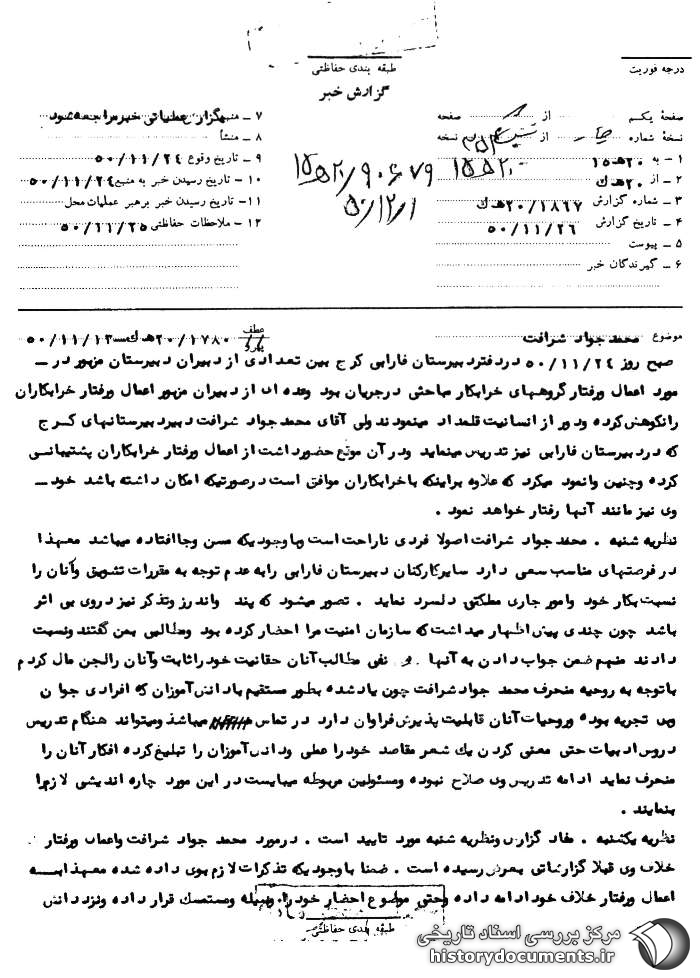 طبقه بندی حفاظتی
گزارش خبر
درجه فوریت
صفحهٔ یکم از صفحه
نسخهٔ شماره از نسخه
۱ – به ۲۰هـ۱۵
۲ – از ۲۰هـ ك
۳ – شماره گزارش ۲۰/۱۸۶۷هـ ك
۴ – تاریخ گزارش ۵۰/۱۱/۲۶
۵ – پیوست
۶ – گیرندگان خبر
۷ – منبع
۸ – منشأ
۹ – تاریخ وقوع ۵۰/۱۱/۲۴
۱۰ – تاریخ رسیدن خبر به منبع ۵۰/۱۱/۲۴
۱۱ – تاریخ رسیدن خبر برهبر عملیات محل
۱۲ – ملاحظات حفاظتی ۵۰/۱۱/۲۵
۵۰/۱۲/۱
موضوع محمد جواد شرافت
عطف ۲۰/۱۷۸۰هـ ك – ۵۰/۱۱/۱۳
پیرو
صبح روز ۵۰/۱۱/۲۴ دردفتردبیرستان فارابی کرج بین تعدادی از دبیران دبیرستان مزبور در –
مورد اعمال ورفتار گروههای خرابکار مباحثی درجریان بود وعده ای از دبیران مزبور اعمال ورفتار خرابکاران
رانکوهش کرده ودور از انسانیت قلمداد مینمودند ولی آقای محمد جواد شرافت دبیردبیرستانهای کرج
که دردبیرستان فارابی نیز تدریس مینماید ودر آن موقع حضورداشت از اعمال ورفتار خرابکاران پشتیبانی
کرده وچنین وانمود میکرد که علاوه براینکه باخرابکاران موافق است درصورتیکه امکان داشته باشد خود –
وی نیز مانند آنها رفتار خواهد نمود .
نظریه شنبه . محمد جواد شرافت اصولا فردی ناراحت است وباوجودیکه مسن وجاافتاده میباشد معهذا
در فرصتهای مناسب سعی دارد سایرکارکنان دبیرستان فارابی رابه عدم توجه به مقررات تشویق وآنان را
نسبت بکار خود وامور جاری مملکتی دلسرد نماید . تصور میشود که پند واندرز وتذکر نیز دروی بی اثر
باشد چون چندی پیش اظهار میداشت که سازمان امنیت مرا احضار کرده بود ومطالبی بمن گفتند ونسبت
دادند منهم ضمن جواب دادن به آنها نفی مطالب آنان حقانیت خودراثابت وآنان رالجن مال کردم
باتوجه به روحیه منحرف محمد جواد شرافت چون یاد شده بطور مستقیم بادانش آموزان که افرادی جوان
وبی تجربه بوده وروحیات آنان قابلیت پذیرش فراوان دارد در تماس میباشد ومیتواند هنگام تدریس
دروس ادبیات حتی معنی کردن یك شعر مقاصد خودرا عملی ودانش آموزان را تبلیغ کرده افکار آنان را
منحرف نماید ادامه تدریس وی صلاح نبوده ومسئولین مربوطه میبایست در این مورد چاره اندیشی لازم را
بنمایند .
نظریه یکشنبه . مفاد گزارش ونظریه شنبه مورد تایید است . درمورد محمد جواد شرافت واعمال ورفتار
خلاف وی قبلا گزارشاتی بعرض رسیده است . ضمنا باوجودیکه تذکرات لازم بوی داده شده معهذا به
اعمال ورفتار خلاف خود ادامه داده وحتی موضوع احضار خودرا وسیله ومستمسك قرار داده ونزد دانش
طبقه بندی حفاظتی
مرکز بررسی اسناد تاریخی
historydocuments.ir